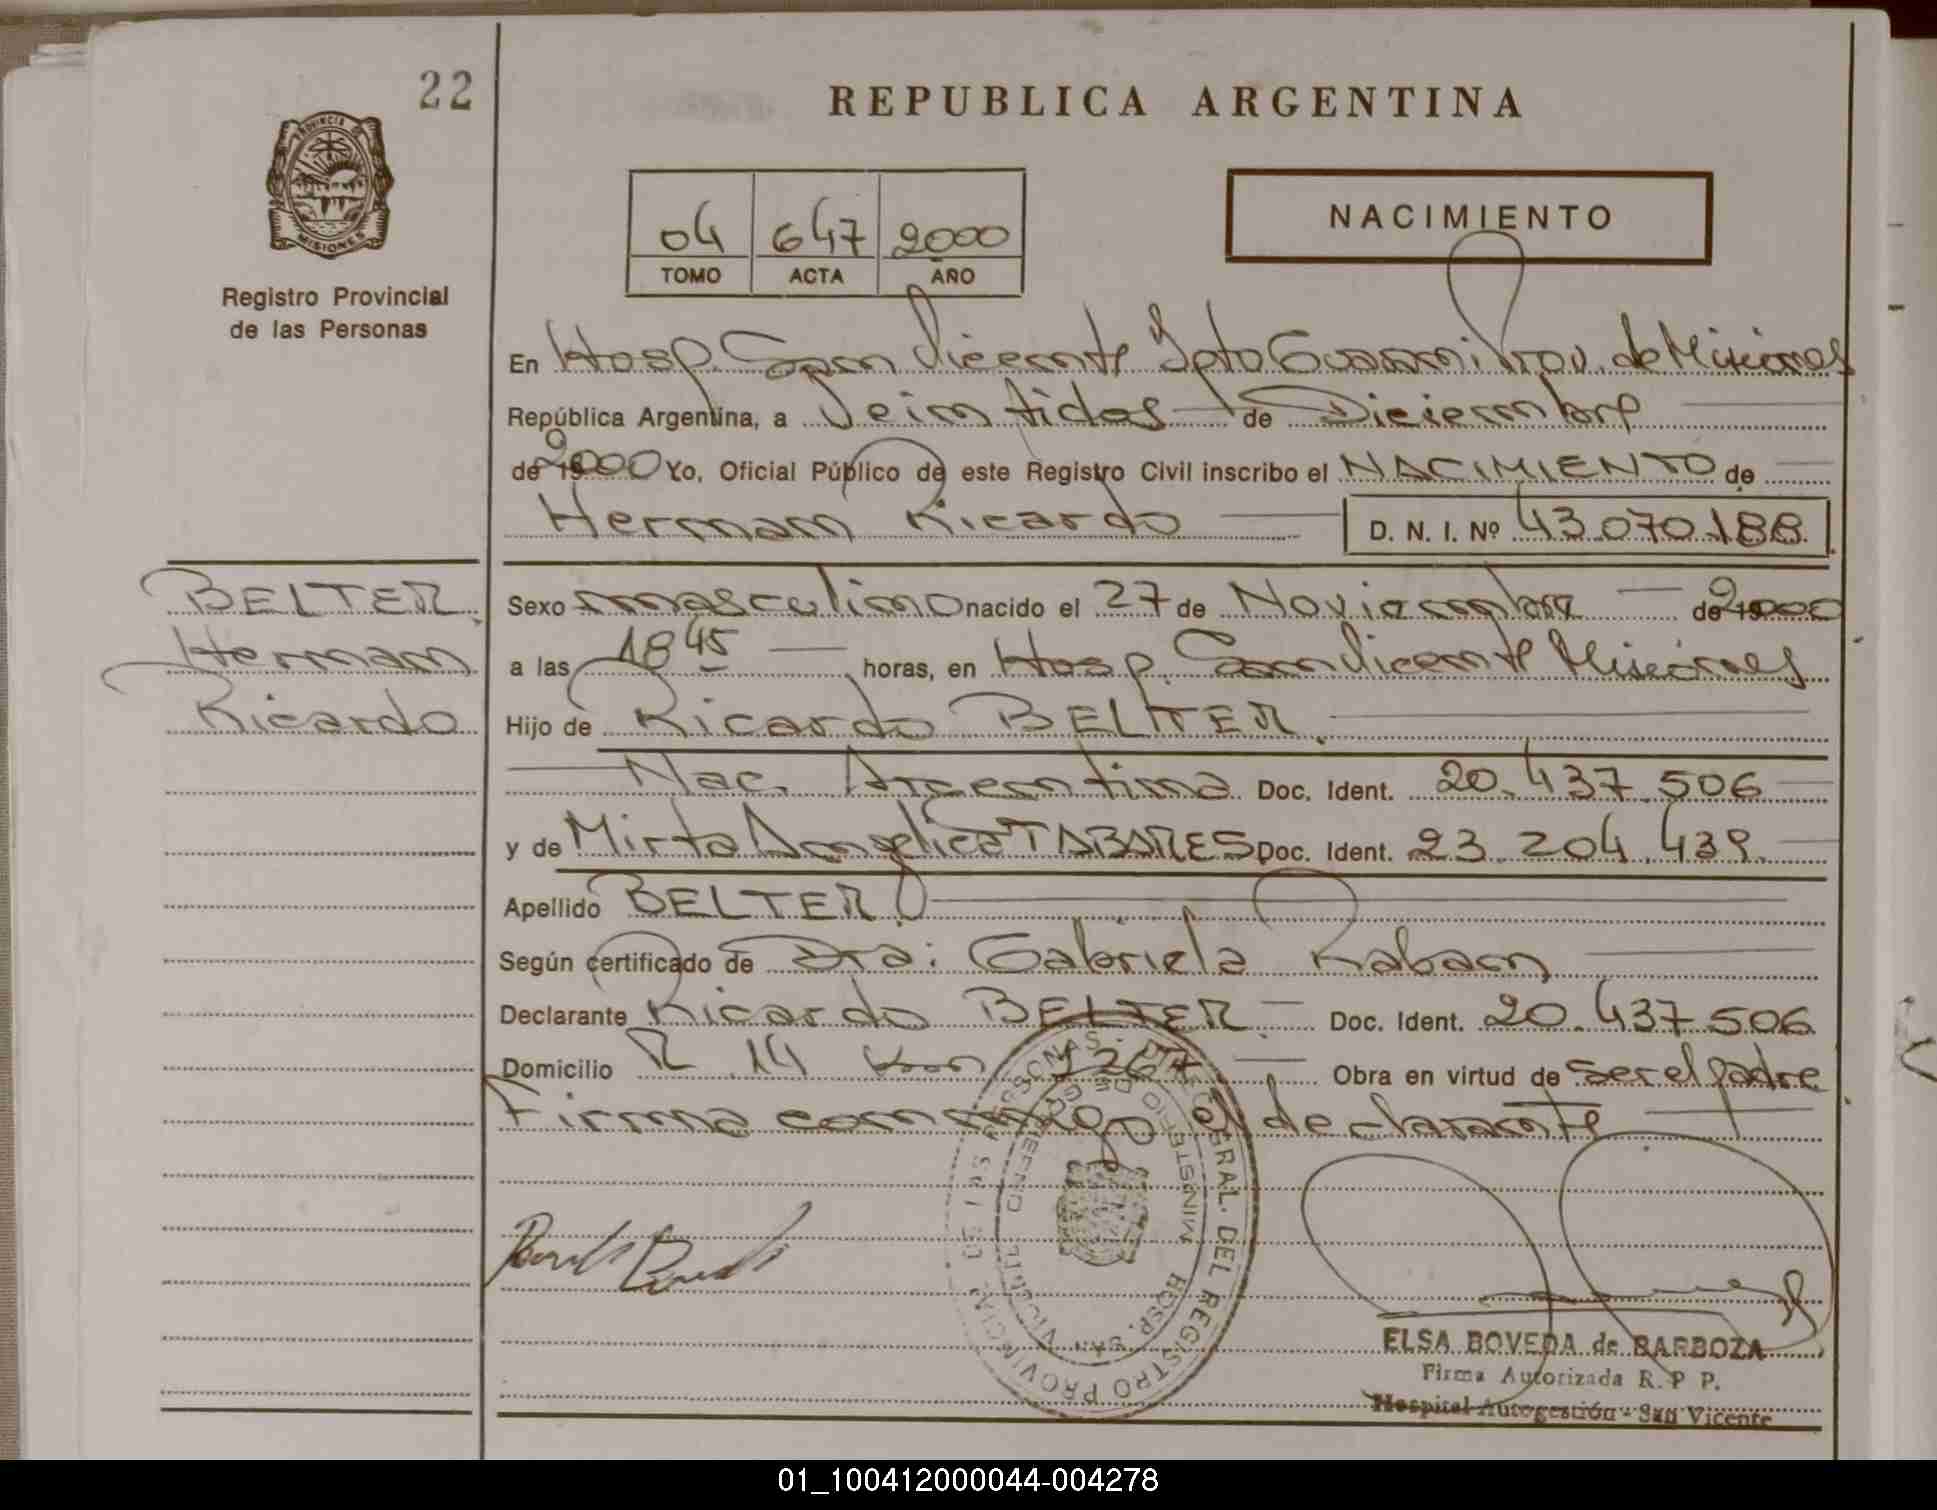 22
REPUBLICA ARGENTINA
PROVINCIA DE
MISIONES
Registro Provincial
de las Personas
04 647 2000
TOMO ACTA AÑO
NACIMIENTO
En Hosp. San Vicente Dpto Guarani Prov. de Misiones
República Argentina, a Veintidos de Diciembre
de 2000 Yo, Oficial Público de este Registro Civil inscribo el NACIMIENTO de
Hernan Ricardo D. N. I. Nº 43.070.188
BELTER
Hernan
Ricardo
Sexo masculino nacido el 27 de Noviembre de 2000
a las 18 45 horas, en Hosp. San Vicente Misiones
Hijo de Ricardo BELTER.
Nac. Argentina Doc. Ident. 20.437.506
y de Mirta Angelica TABARES Doc. Ident. 23.204.439.
Apellido BELTER
Según certificado de Dra: Gabriela
Declarante Ricardo BELTER. Doc. Ident. 20.437.506
Domicilio R 14 Km 1267 Obra en virtud de ser el padre
Firma conmigo el declarante
REGISTRO PROVINCIAL DE LAS PERSONAS
HOSP. SAN VICENTE
ELSA BOVEDA de BARBOZA
Firma Autorizada R. P P.
Hospital Autogestión - San Vicente
01_100412000044-004278